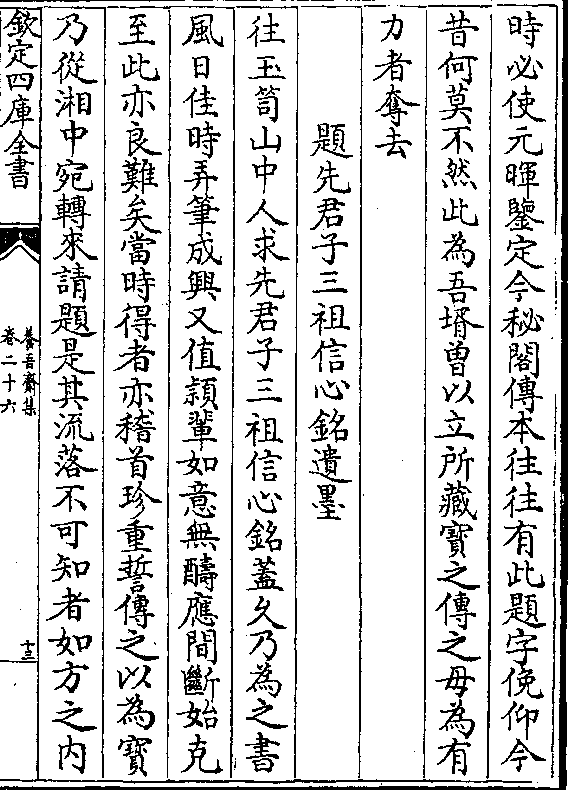 時必使元暉鑒定今秘閣傳本往往有此題字俛仰今
昔何莫不然此為吾壻曽以立所藏寳之傳之毋為有
力者奪去
題先君子三祖信心銘遺墨
往玉笥山中人求先君子三祖信心銘蓋久乃為之書
風日佳時弄筆成興又值頴輩如意無酬應間斷始克
至此亦良難矣當時得者亦稽首珍重誓傳之以為寳
乃從湘中宛轉來請題是其流落不可知者如方之内
欽定四庫全書
養吾齋集
卷二十六
十三